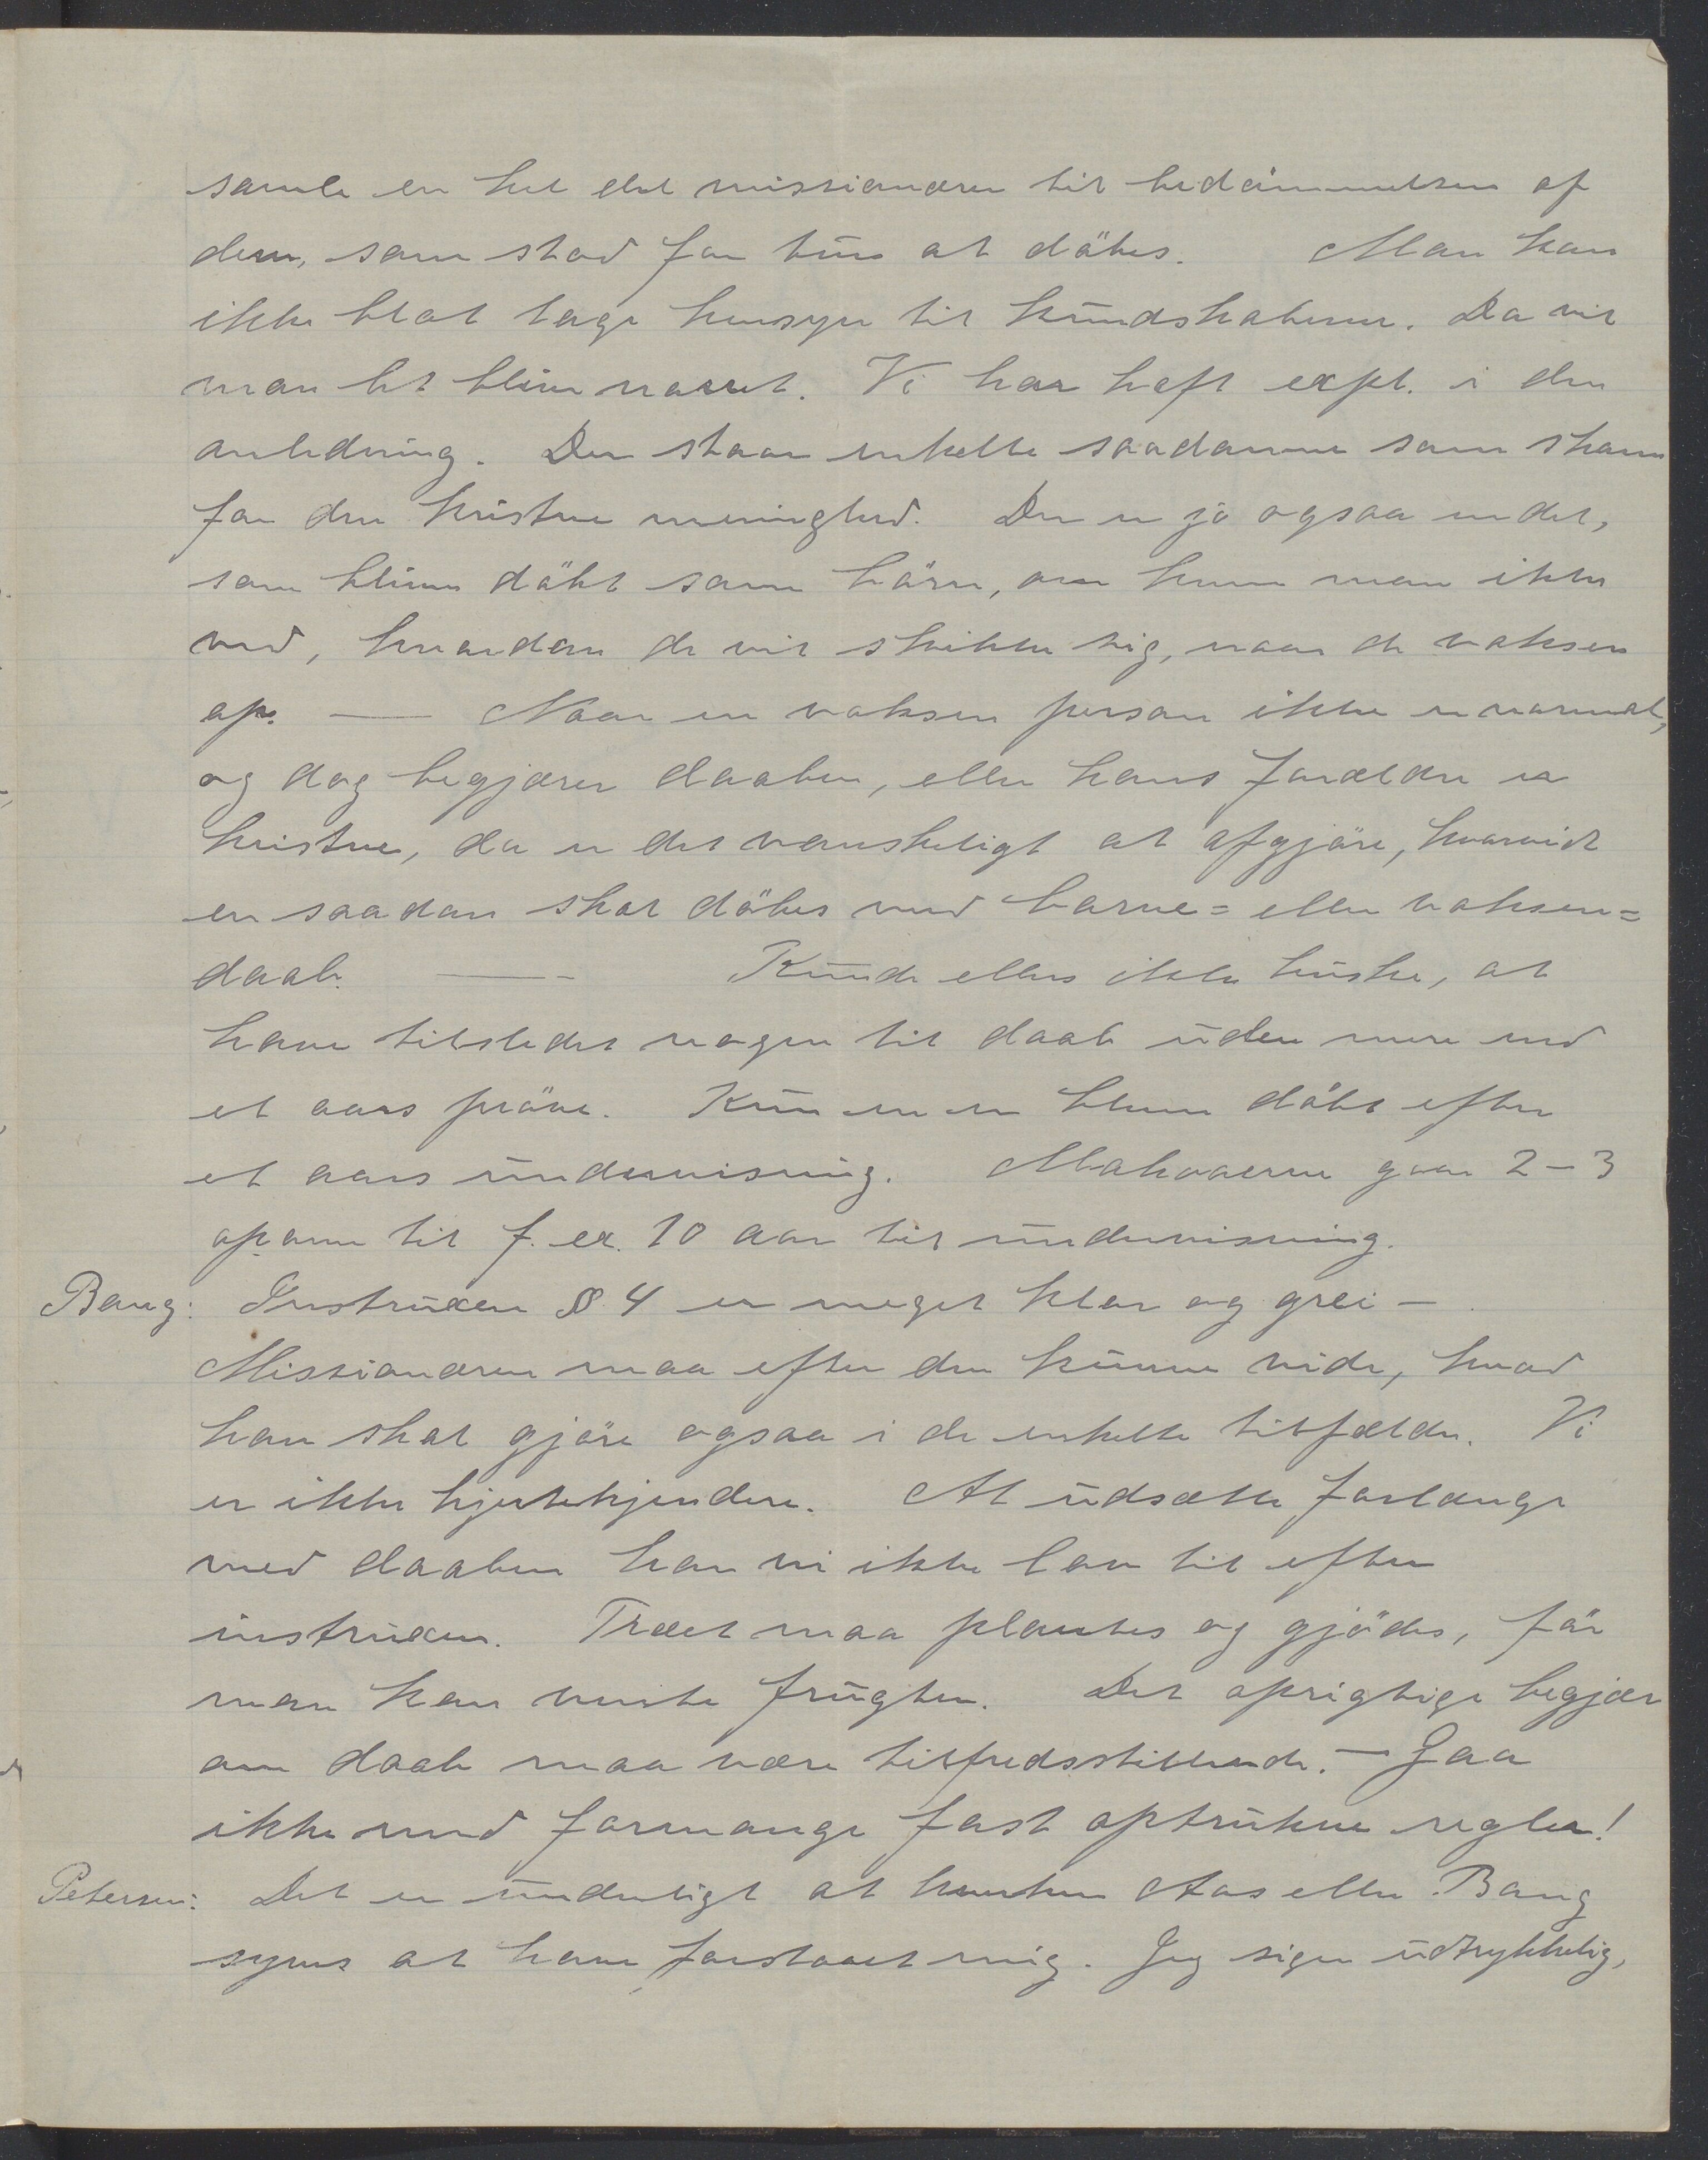 samle en hel del missionærer til bedömmelsen af
dem, som stod for tur at döbes. Man kan
ikke blot tage hensyn til kundskaberne. Da vil
man let blive narret. Vi har haft expl. i den
anledning. Der staar enkelte saadanne som skam
for den kristne menighed. Der er jo ogsaa endel,
som blive döbt som börn, om hvem man ikke
ved, hvordan de vil skikke sig, naar de voksen
op. — Naar en voksen person ikke er normal,
og dog begjærer daaben, eller hans forældre er
kristne, da er det vanskeligt at afgjöre, hvorvidt
en saadan skal döbes med barne= eller voksen=
daab. — Kunde ellers ikke huske, at
have tilstedet nogen til daab uden mere end
et aars pröve. Kun en er bleven döbt efter
et aars undervisning. Makoaerne gaar 2-3
op om til f. ex. 10 aar til undervisning.
Bang: Instruxen § 4 er meget klar og grei —
Missionæren maa efter den kunne vide, hvad
han skal gjöre ogsaa i de enkelte tilfælder. Vi
er ikke hjertekjendere. At udsætte forlænge
med daaben har vi ikke lov til efter
instruxen. Træet maa plantes og gjödes, för
man kan vente frugten. Det oprigtige begjær
om daab maa være tilfredsstillende. — Gaa
ikke med formange fast optrukne regler!
Petersen: Det er underligt at hverken Aas eller Bang
synes at have forstaaet mig. Jeg siger udtrykkelig,